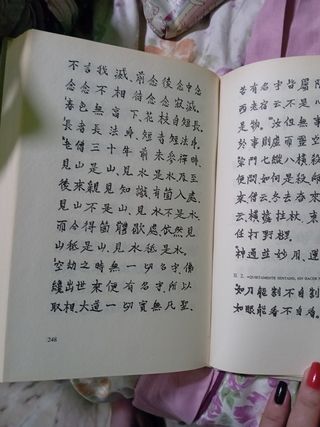 不言我滅、前念後念中念
念念不相待念念寂滅、
春色無高下、花枝自短長、
長者長法身、短者短法身、
老僧三十年前未參禪時、
見山是山、見水是水、及至
後來親見知識有箇入處、
見山不是山、見水不是水、
而今得箇體歇處依然見
山秖是山、見水秖是水、
空劫之時無一切名字、佛
纔出世來便有名字、所以
取相、大道一切實無凡聖、
248
若有名字皆屬
西老宿云不是
是物。汝但無
於事則虛而
七縱八橫
便問如何是
云橫擔拄杖、
任打野榸、
神通並妙用、運
II. 2. «QUIETAMENTE SENTADO, SIN HACER N
如刀能割不自割
如眼能看不自看